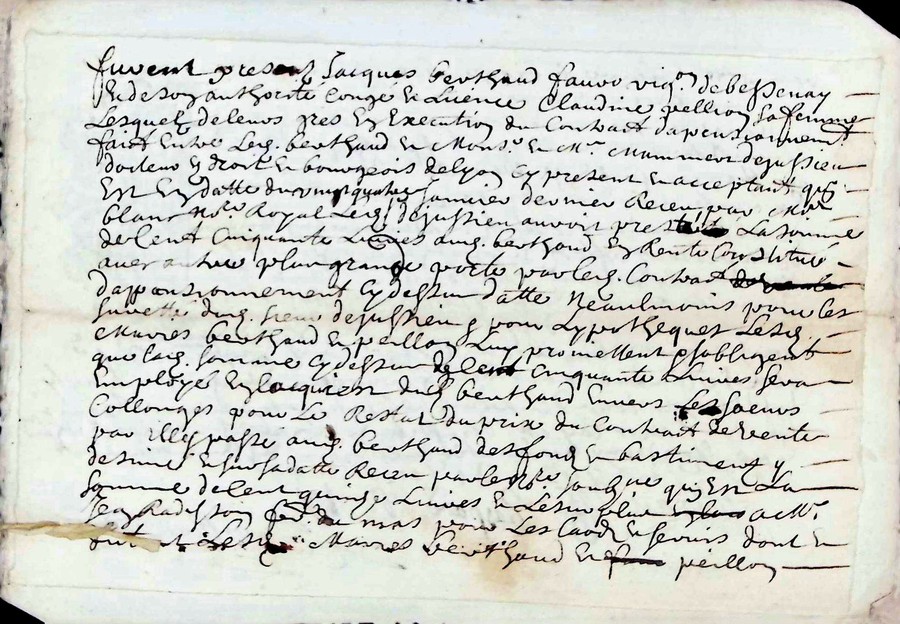 furent present Jacques berthaud fauvo vig.on de bessenay
& de son authorité Congé & Licence Claudine peillion sa femme
Lesquels de leurs gres En Execution du Contract dapensionnem.t
fait Entre Led. berthaud & Mons.r & M.re dejussieu
docteur En droit & bourgeois de lyon Cy present & acceptant qui
Est En datte du vingt quatre Janvier dernier Receu par M.re
blanc No.re Royal Led. S.r dejussieu auroit preste La somme
de Cent Cinquante Livres aud. berthaud En Rente Constitué
avec autre plus grande portée par led. Contract
dapensionnement Cy dessus datte Neaulmoins pour les
suretté dud. sieur dejussieu & pour Lypotheques Lesd.
Mariés berthaud & peillon Luy promettent & sobligent
que lad. somme Cy dessus de Cent Cinquante Livres sera
Employé En lacquiest dud. berthaud Envers Les soeurs
Collonges pour Le Restat du prix du Contract de vente
par Illes passé aud. berthaud des fond & bastiments y
designé & sur sa datte Receu par le no.re soubz.ne qui Est La
somme de Cent quinze Livres & Le surplus a M.re
Jean Radisson du mas pour Les Laodz & servis dont &
Lesd. Mariés berthaud & peillon